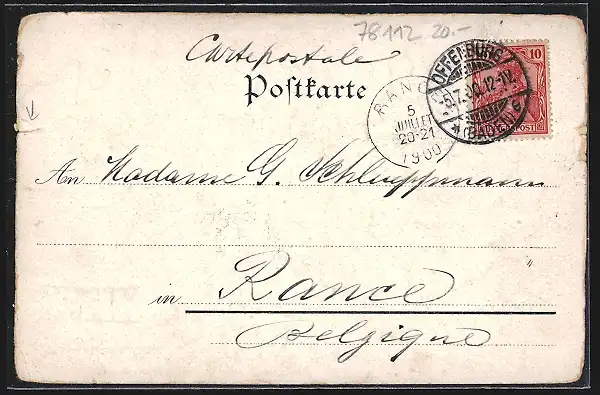 78112 20.-
Cartepostale
Postkarte
10
OFFENBURG
5.7.00.12-1N.
* (BADEN) *
RANCE
5
JUILLET
20-21
1900
An Madame G. Schlueppmann
in Rance
Belgique